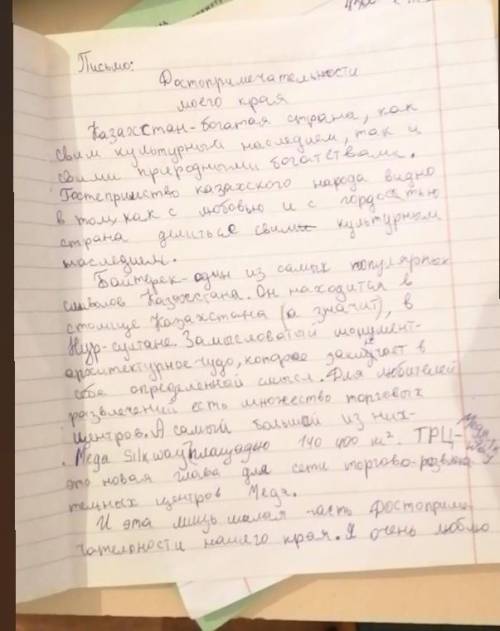 Письмо:
Достопримечательности
моего края
Казахстан-богатая страна, как
своим культурным наследием, так и
своими природными богатствами.
Гостеприимство казахского народа видно
в том, как с любовью и с гордостью
страна делиться своим культурным
наследием.
Байтерек-один из самых популярных
символов Казахстана. Он находится в
столице Казахстана (а значит), в
Нур-султане. Замысловатый монумент-
архитектурное чудо, которое заключает в
себе определенной смысл. Для любителей
развлечений есть множество торговых
центров. А самый большой из них-
Mega Silkway площадью 140 000 m². ТРЦ-
это новая глава для сети торгово-развлека
тельных центров Mega.
И эта лишь малая часть достоприме
чательности нашего края. Я очень люблю